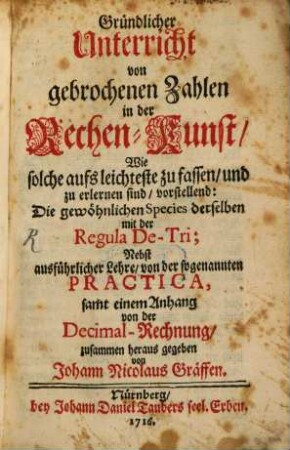 Gründlicher
Unterricht
von
gebrochenen Zahlen
in der
Rechen-Kunst/
Wie
solche aufs leichteste zu fassen/ und
zu erlernen sind/ vorstellend:
Die gewöhnlichen Species derselben
mit der
Regula De-Tri;
Nebst
ausführlicher Lehre/ von der sogenannten
PRACTICA,
samt einem Anhang
von der
Decimal-Rechnung/
zusammen heraus gegeben
von
Johann Nicolaus Gräffen.
Nürnberg/
bey Johann Daniel Taubers seel. Erben.
1716.